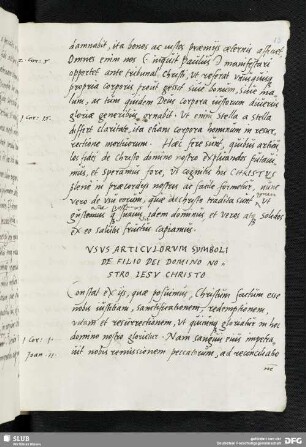 damnabit, ita bonos ac iustos præmijs æternis afficiet.
2. Cor: 5
Omnes enim nos (inquit Paulus) manifestari
oportet ante tribunal Christi, ut referat unusquisque
propria corporis prout gessit siue bonum, siue ma-
lum, ac tum quidem Deus corpora iustorum diuersis
1. Cor: 15.
gloriæ generibus ornabit. Ut enim stella a stella
differt claritate, ita etiam corpora hominum in resur-
rectione mortuorum. Hæc fere sunt, quibus articu-
los fidei de Christo domino nostro explicandos putaui-
mus, et speramus fore, ut cogniti his CHRISTUS
plene in præcordijs nostris ac fide formetur, nunc
vero de usu eorum, quæ de Christo tradita sunt, ut
idem dominus et veros ac solidos
ex eo salutis fructus capiamus.
VSVS ARTICVLORVM SYMBOLI
DE FILIO DEI DOMINO NO-
STRO IESV CHRISTO
Constat ex ijs, quæ posuimus, Christum factum esse
nobis iustitiam, sanctificationem, redemptionem
vitam et resurrectionem, ut quicunque gloriatur in hoc
1. Cor: 1.
domino nostro glorietur. Nam sanguis eius impetra-
1. Joan: 1.
uit nobis remissionem peccatorum, ad reconciliatio
ne
SLUB
Wir führen Wissen.
gefördert von der
Deutschen Forschungsgemeinschaft
DFG